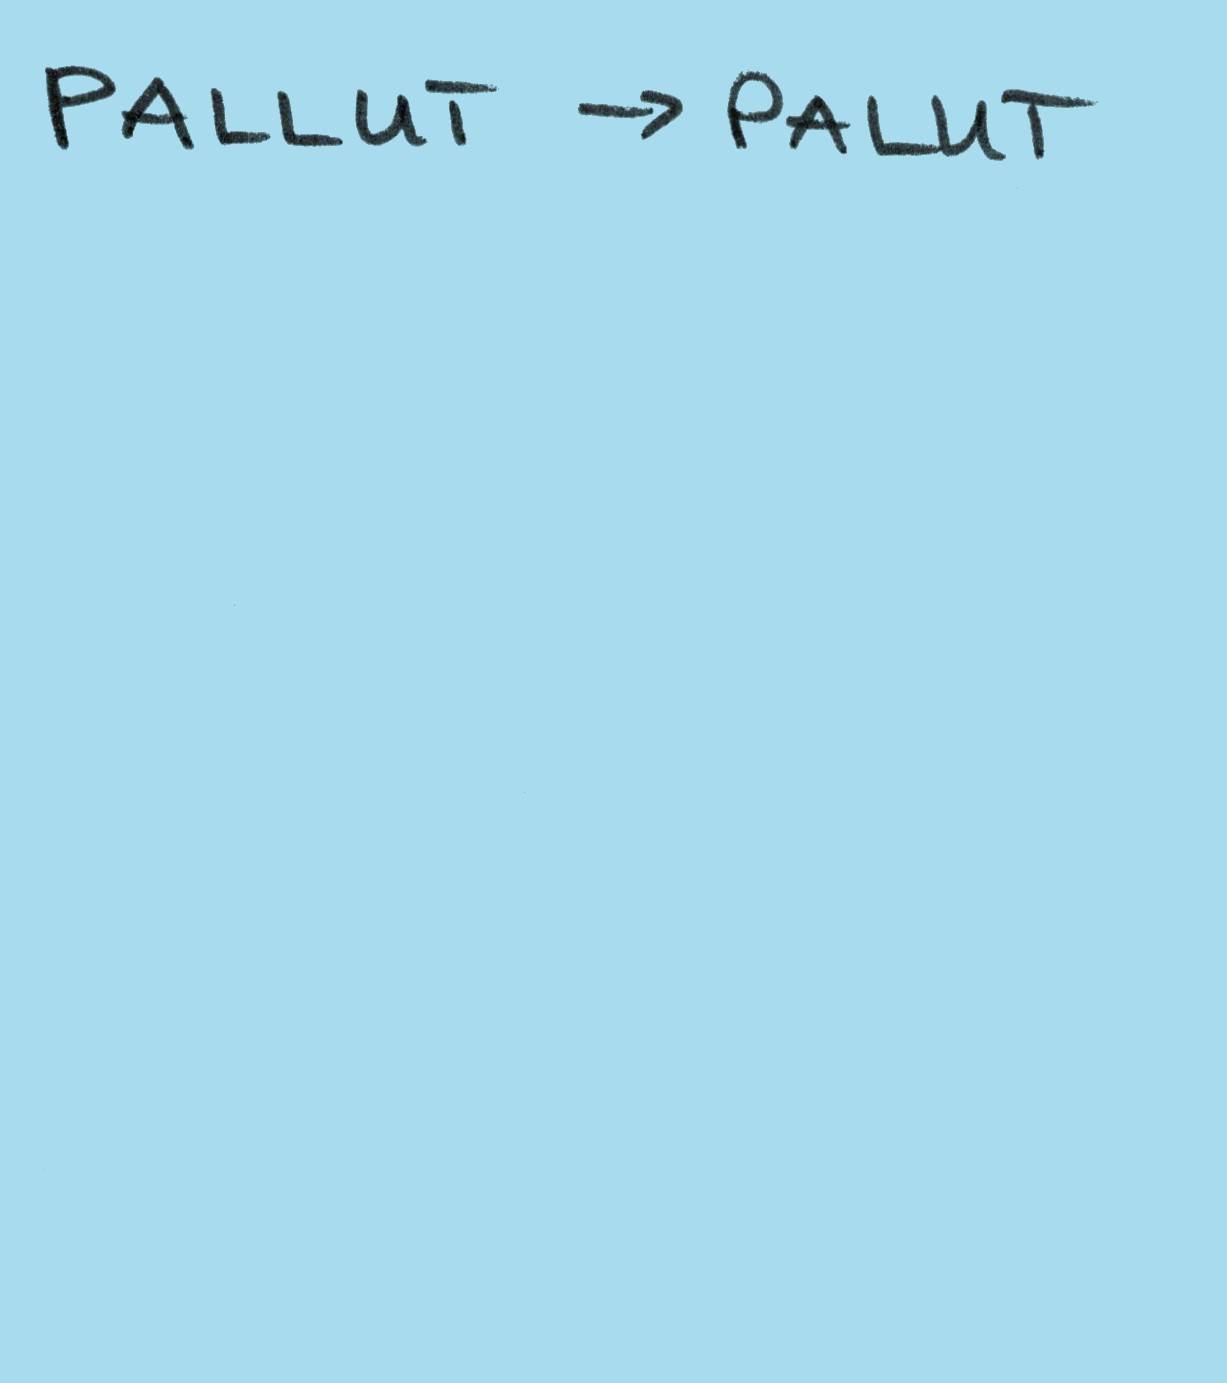 PALLUT → PALUT